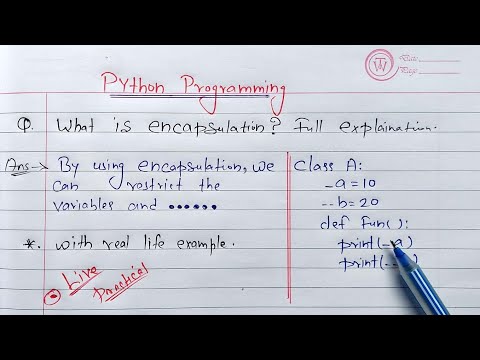 Date
Page
Python Programming
Q. What is encapsulation? Full explaination.
Ans:-> By using encapsulation, we
can restrict the
variables and ......
*. with real life example.
Live
Practical
Class A:
_a=10
--b=20
def fun():
print(_a)
print(--